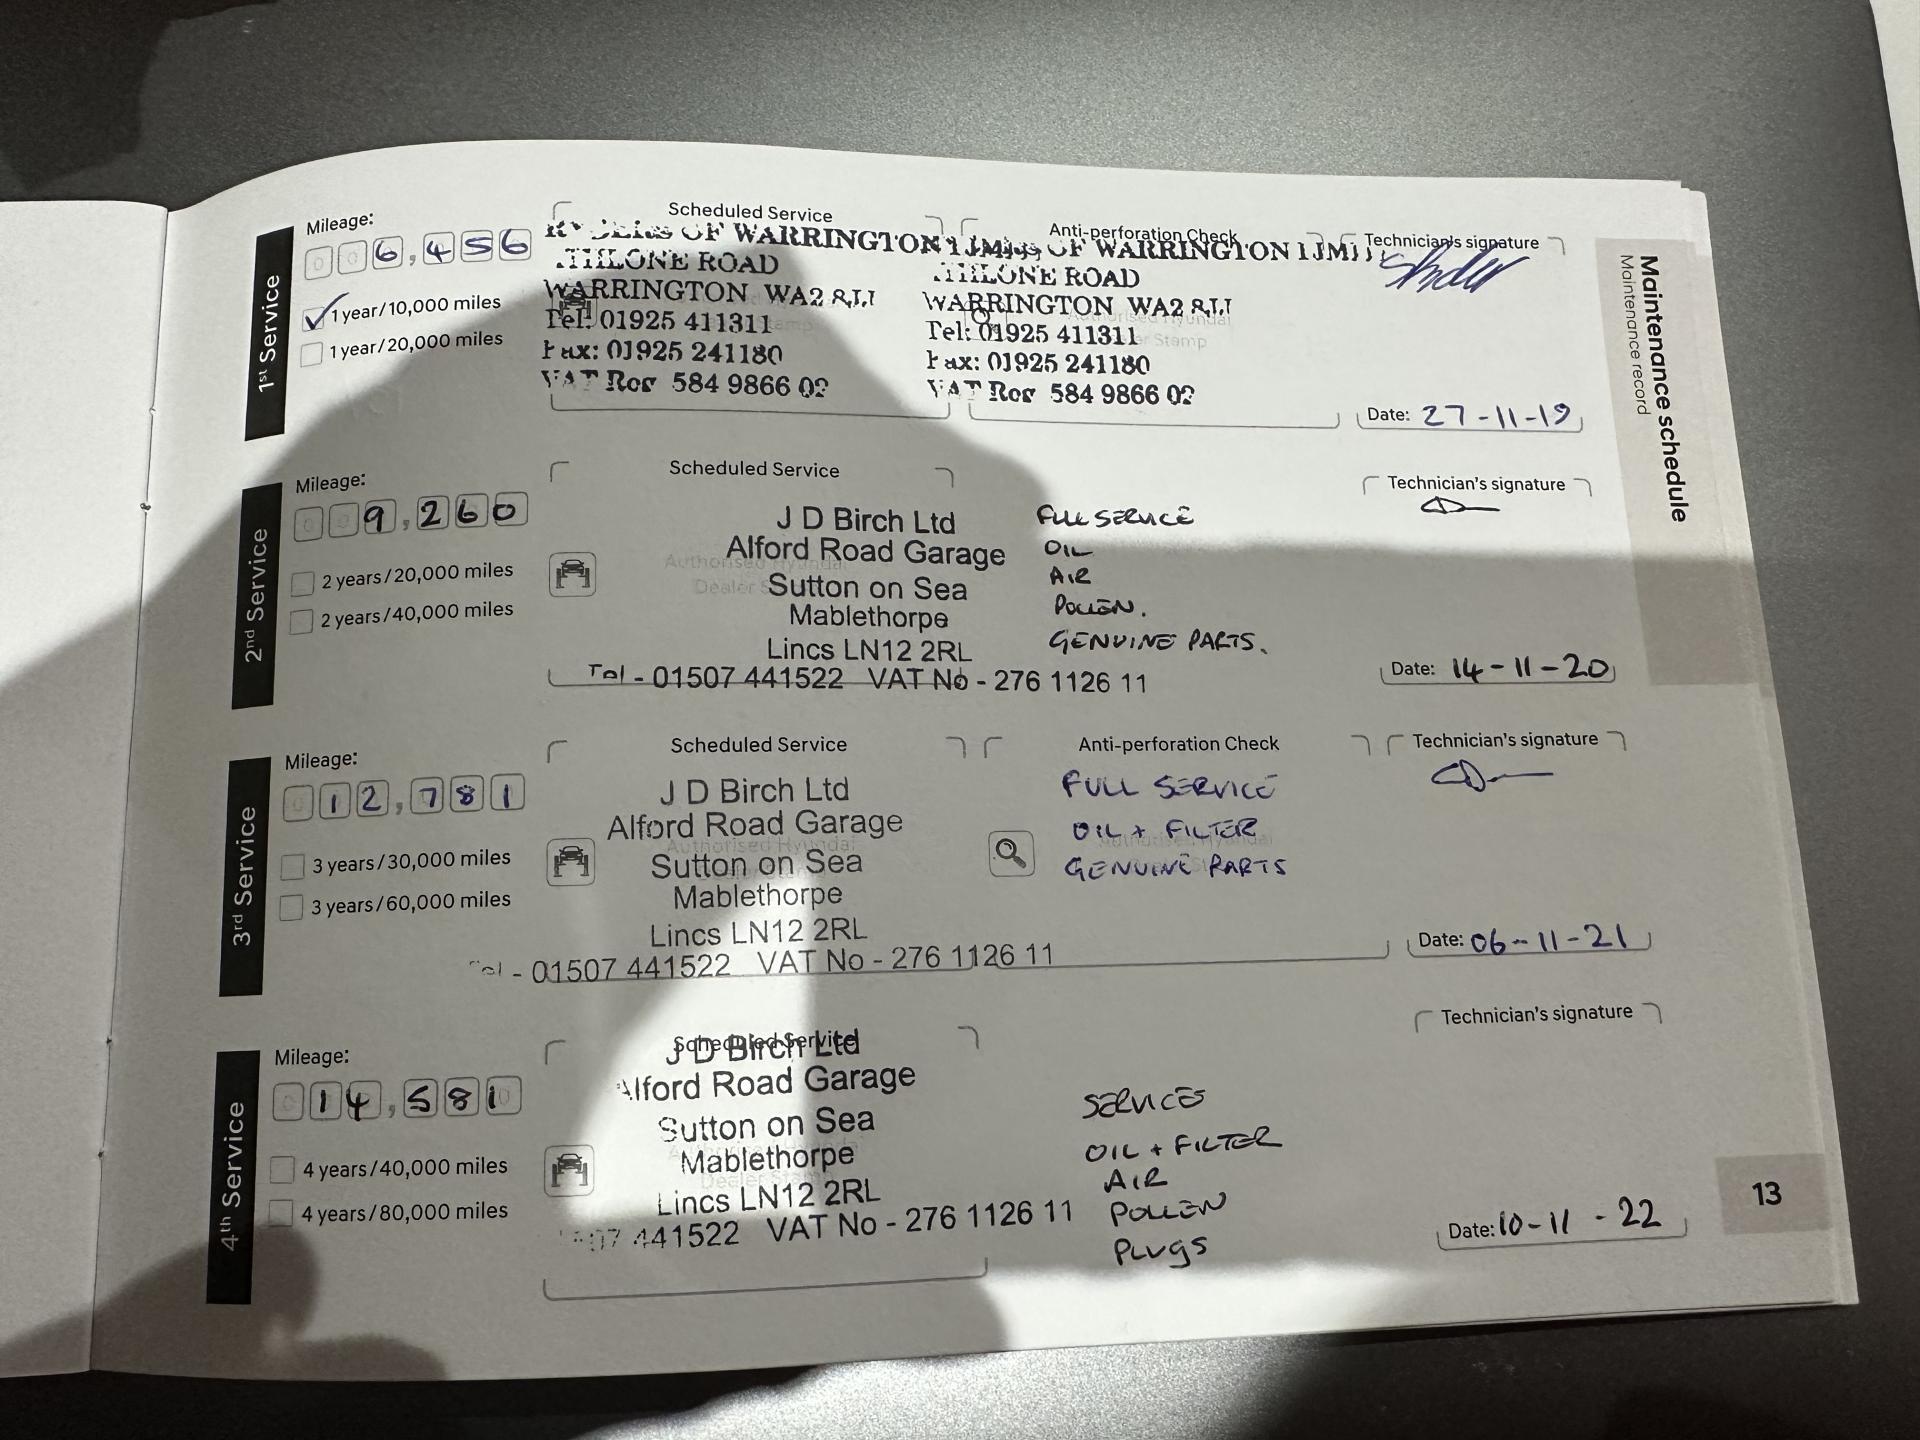 Maintenance schedule
Maintenance record
1st Service
Mileage:
006,456
1 year/10,000 miles
1 year/20,000 miles
Scheduled Service
OF WARRINGTON
ROAD
WARRINGTON WA2
Tel: 01925 411311
Fax: 01925 241180
584 9866 02
Anti-perforation Check
OF WARRINGTON
ROAD
WARRINGTON WA2
Tel: 01925 411311
Fax: 01925 241180
584 9866 02
Technician's signature
Date: 27-11-19
2nd Service
Mileage:
009,260
2 years/20,000 miles
2 years/40,000 miles
Scheduled Service
Authorised Hyundai
Dealer
J D Birch Ltd
Alford Road Garage
Sutton on Sea
Mablethorpe
Lincs LN12 2RL
Tel - 01507 441522 VAT No - 276 1126 11
FULL SERVICE
OIL
AIR
POLLEN.
GENUINE PARTS.
Technician's signature
Date: 14-11-20
3rd Service
Mileage:
012,781
3 years/30,000 miles
3 years/60,000 miles
Scheduled Service
Authorised Hyundai
J D Birch Ltd
Alford Road Garage
Sutton on Sea
Mablethorpe
Lincs LN12 2RL
Tel - 01507 441522 VAT No - 276 1126 11
Anti-perforation Check
FULL SERVICE
OIL + FILTER
GENUINE PARTS
Technician's signature
Date: 06-11-21
4th Service
Mileage:
014,581
4 years/40,000 miles
4 years/80,000 miles
Scheduled Service
Dealer Stamp
J D Birch Ltd
Alford Road Garage
Sutton on Sea
Mablethorpe
Lincs LN12 2RL
441522 VAT No - 276 1126 11
SERVICES
OIL + FILTER
AIR
POLLEN
PLUGS
Technician's signature
Date: 10-11-22
13